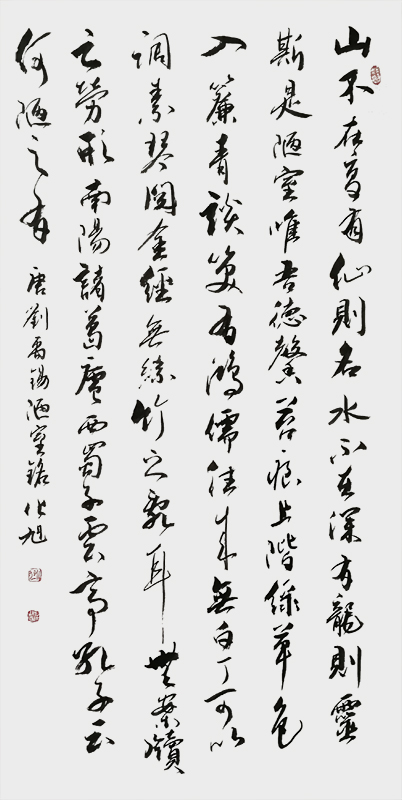 山不在高有仙則名水不在深有龍則靈
斯是陋室唯吾德馨苔痕上階綠草色
入簾青談笑有鴻儒往來無白丁可以
調素琴閱金經無絲竹之亂耳無案牘
之勞形南陽諸葛廬西蜀子雲亭孔子云
何陋之有
唐劉禹錫陋室銘 化旭